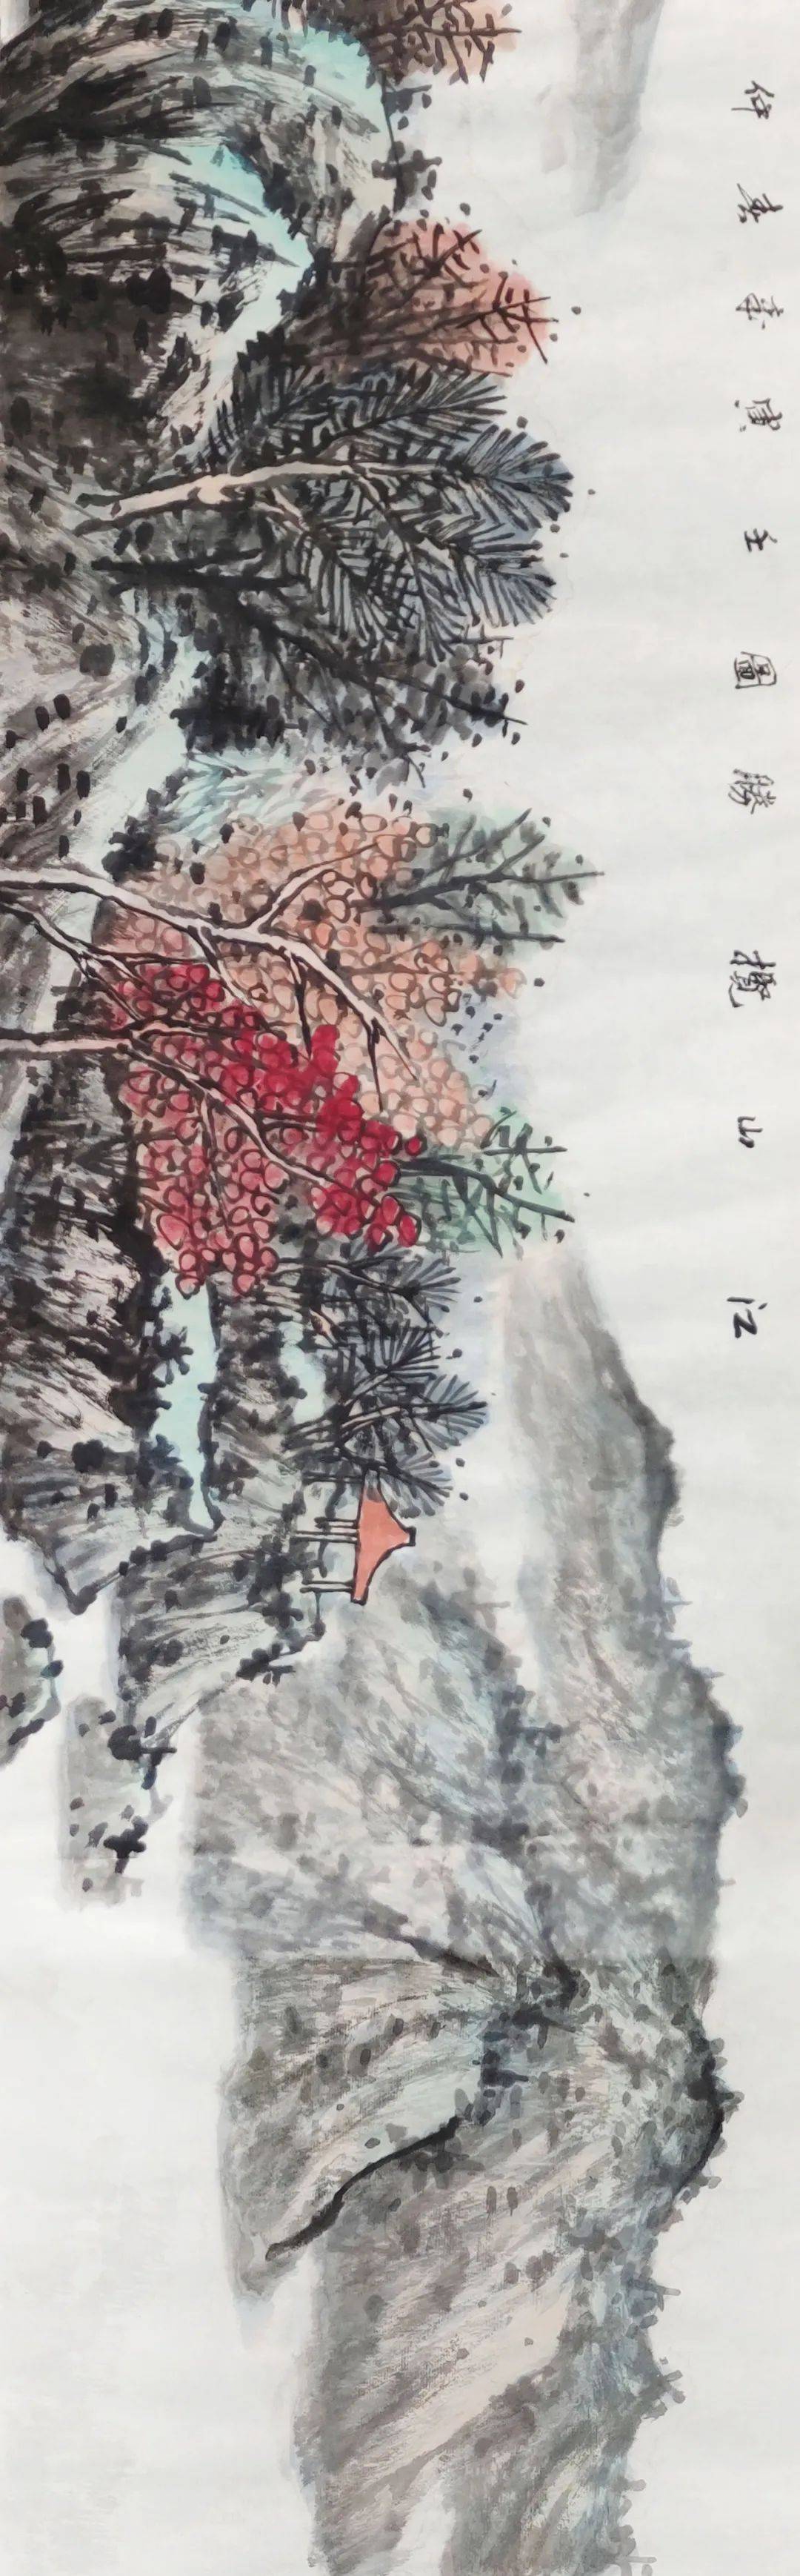 江山攬勝圖壬寅季春仲